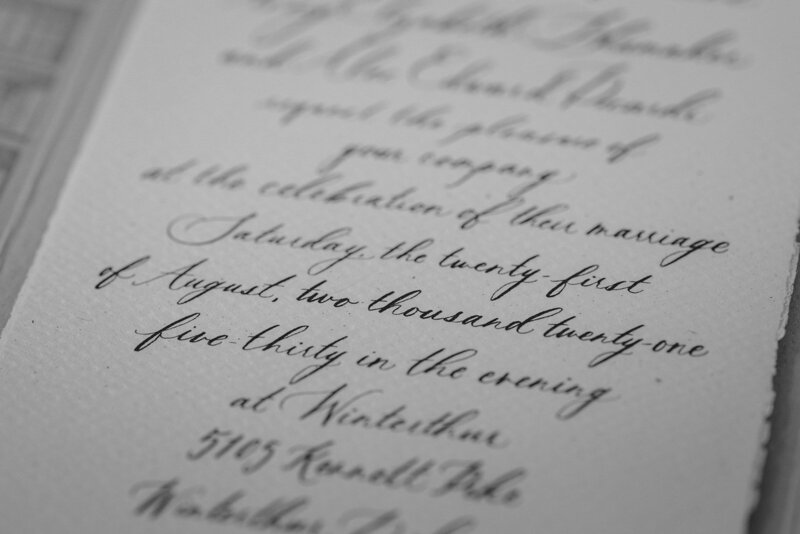 Elizabeth Shoemaker
and Alex Edward
request the pleasure of
your company
at the celebration of their marriage
Saturday, the twenty-first
of August, two thousand twenty-one
five-thirty in the evening
at Winterthur
5105 Kennett Pike
Winterthur